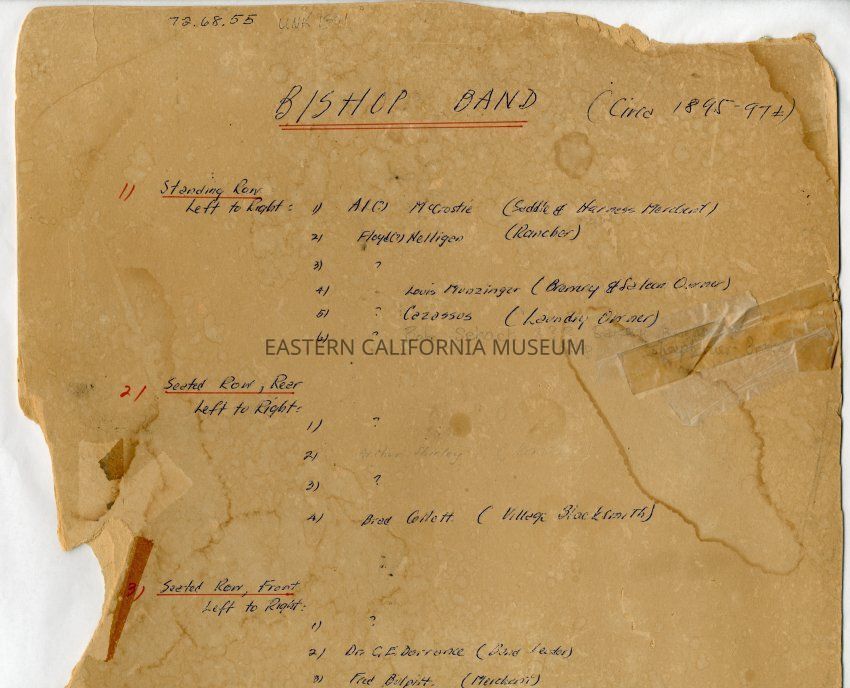 72.68.55 UNK 1341
BISHOP BAND (Circa 1895-97±)
1) Standing Row
Left to Right: 1) Al(?) McCrostie (Saddle & Harness Merchant)
2) Floyd(?) Nelligan (Rancher)
3) ?
4) Louis Munzinger (Brewery & Saloon Owner)
5) ? Cazassus (Laundry Owner)
6) ?
EASTERN CALIFORNIA MUSEUM
2) Seated Row, Rear
Left to Right:
1) ?
2) Arthur Shirley
3) ?
4) Brad Collett (Village Blacksmith)
3) Seated Row, Front
Left to Right:
1) ?
2) Dr. C.E. Dorrance (Band Leader)
3) Fred Bulpitt (Merchant)